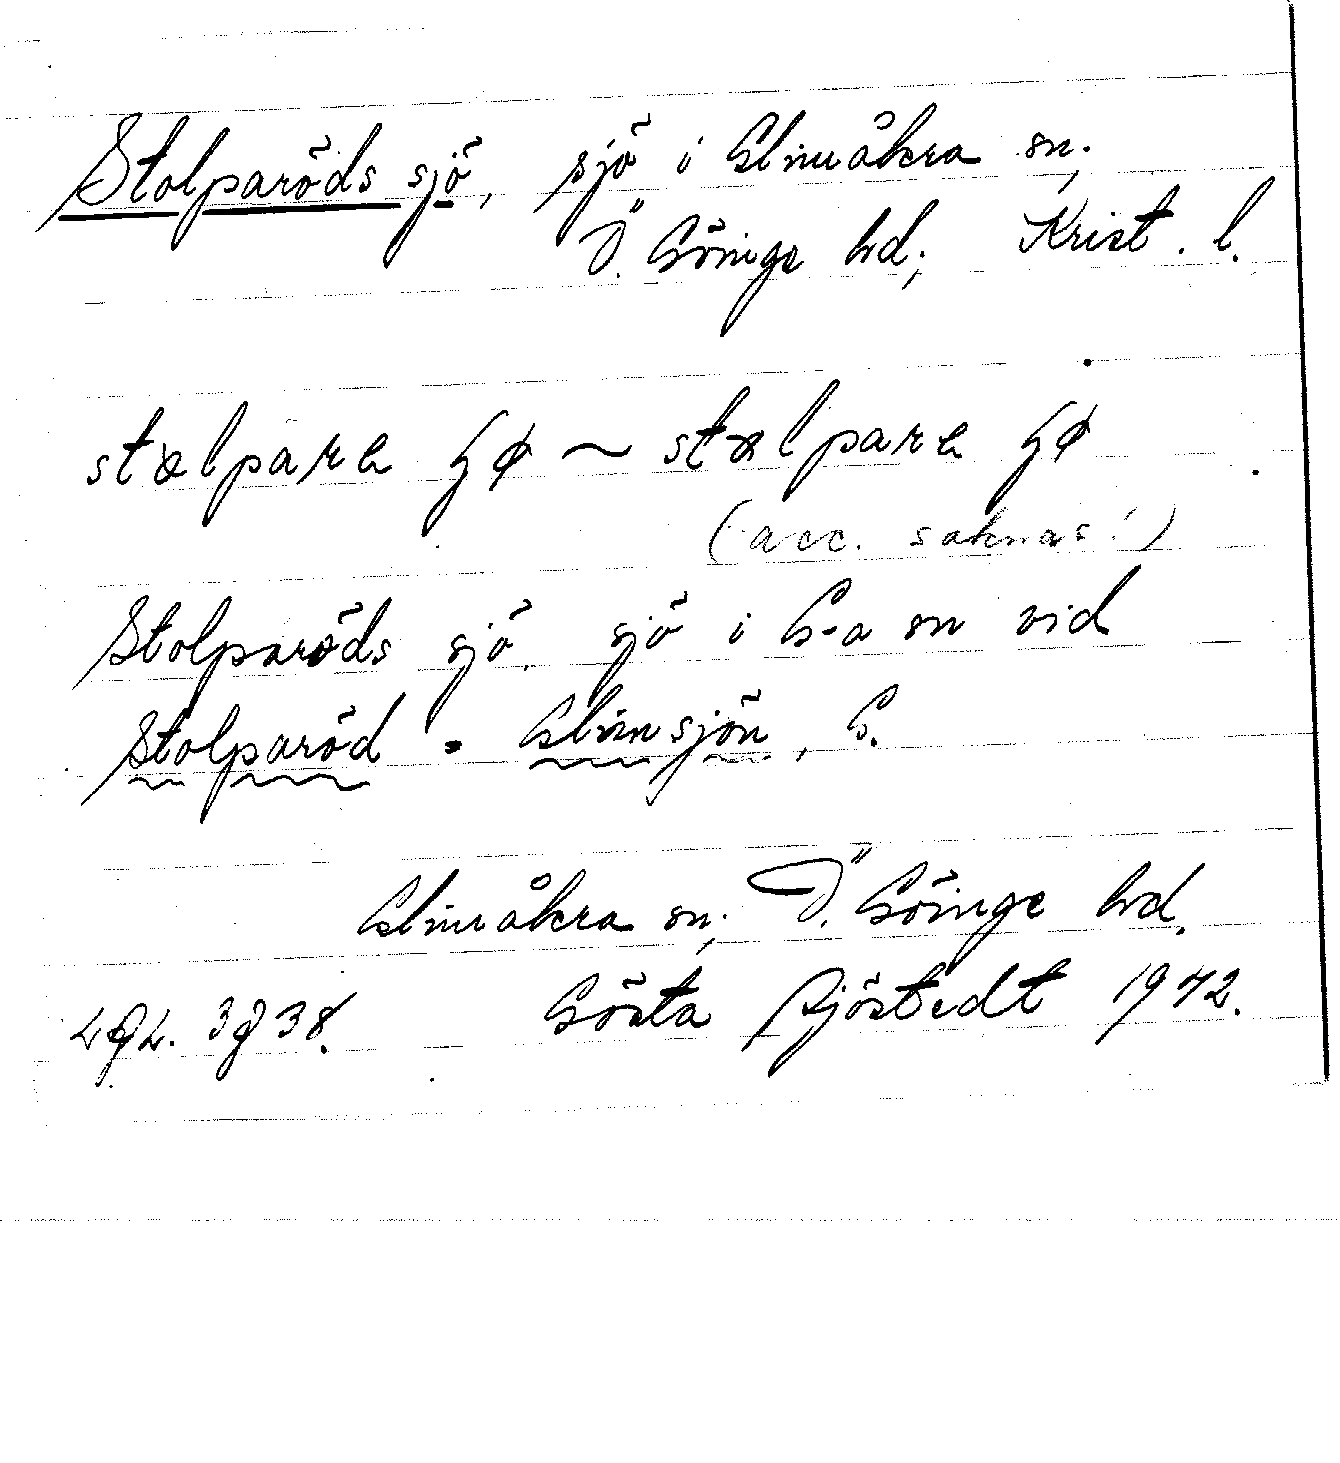 Stolparöds sjö, sjö i Glimåkra sn;
Ö. Göinge hd; Krist. l.
stɷlpara ʃø ~ stɷlpara ʃø
(acc. saknas!)
Stolparöds sjö, sjö i G-a sn vid
Stolparöd = Glimsjön, G.
Glimåkra sn; Ö. Göinge hd.
3938. Gösta Sjöstedt 1942.